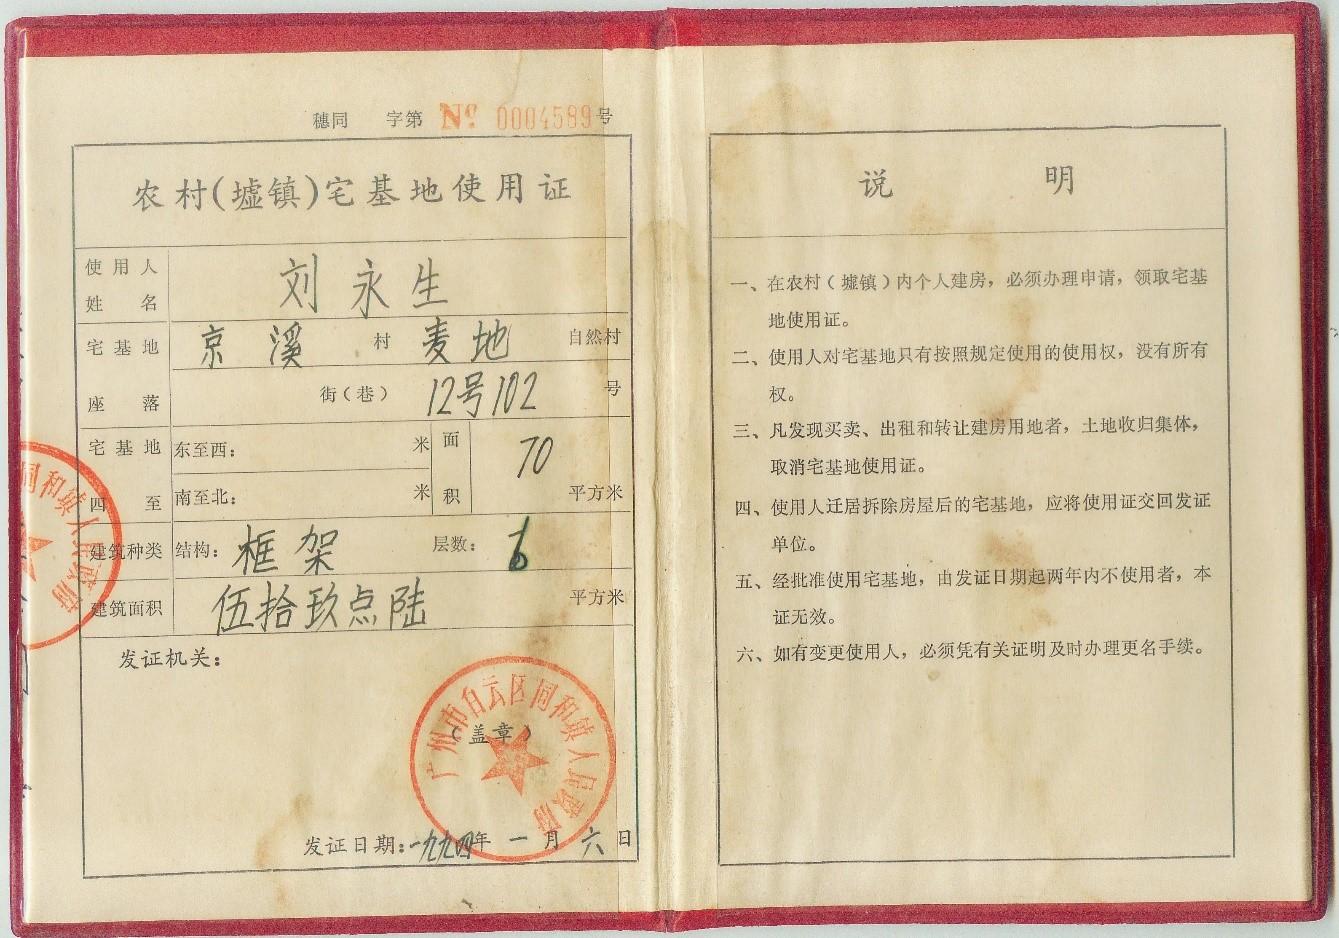 穗同 字第 № 0004589号
农村(墟镇)宅基地使用证
使用人姓名 刘永生
宅基地座落 京溪村 麦地 自然村
街(巷) 12号102 号
宅基地四至 东至西: 米
南至北: 米
面积 70 平方米
建筑种类 结构: 框架 层数:
建筑面积 伍拾玖点陆 平方米
发证机关:
(盖章)
广州市白云区同和镇人民政府
发证日期:一九九四年 一月 六日
同和镇人民政府
说 明
一、在农村(墟镇)内个人建房,必须办理申请,领取宅基
地使用证。
二、使用人对宅基地只有按照规定使用的使用权,没有所有
权。
三、凡发现买卖、出租和转让建房用地者,土地收归集体,
取消宅基地使用证。
四、使用人迁居拆除房屋后的宅基地,应将使用证交回发证
单位。
五、经批准使用宅基地,由发证日期起两年内不使用者,本
证无效。
六、如有变更使用人,必须凭有关证明及时办理更名手续。